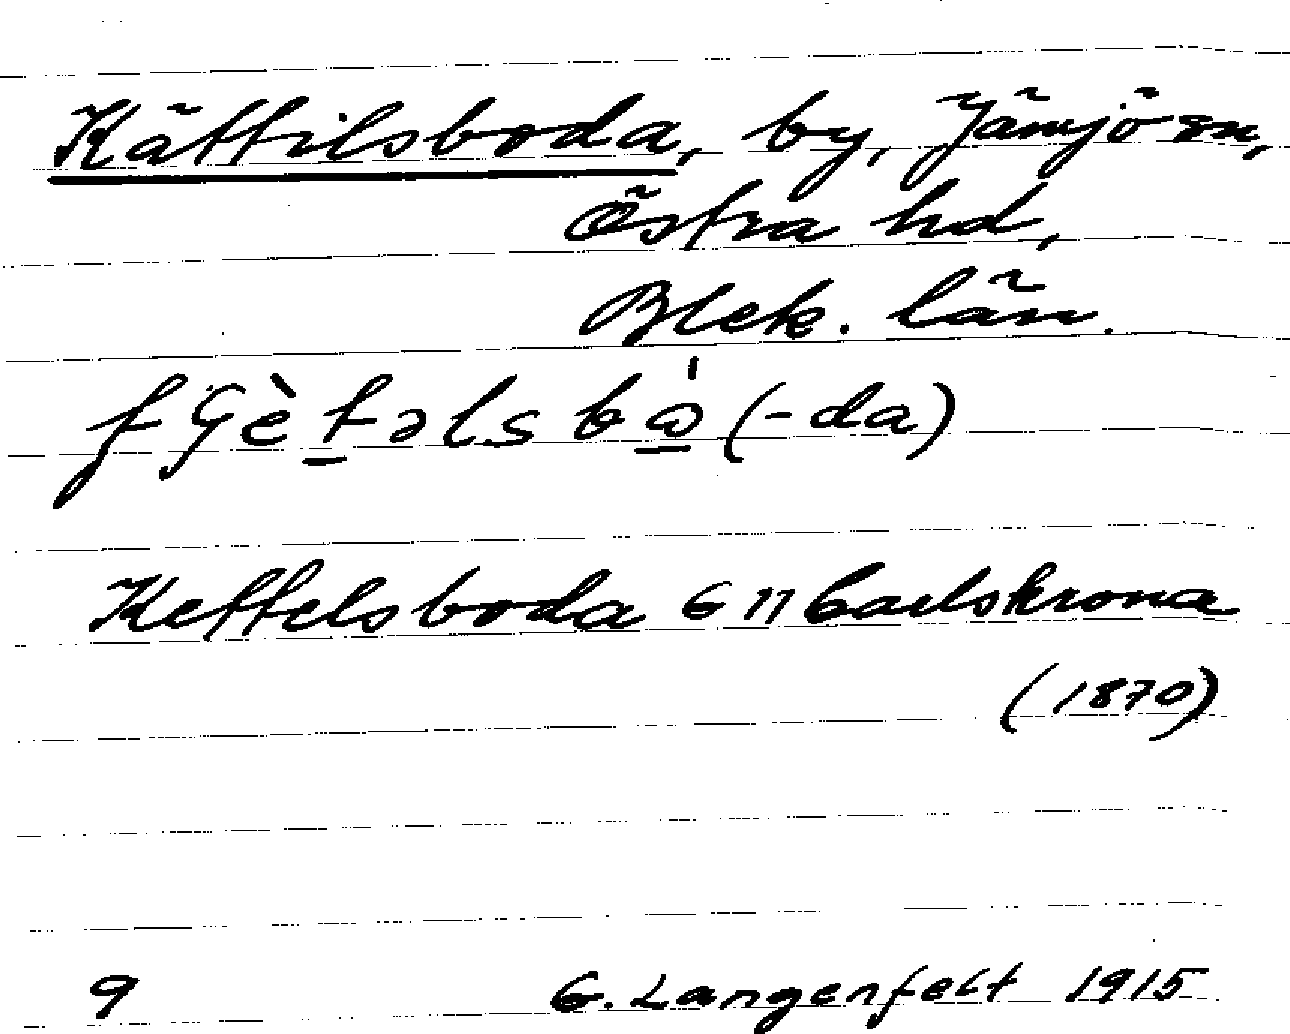 Kättilsboda, by, Jämjö sn,
Östra hd,
Blek. län.
(-da)
Kettelsboda G 11 Carlskrona
(1870)
9 G. Langenfelt 1915